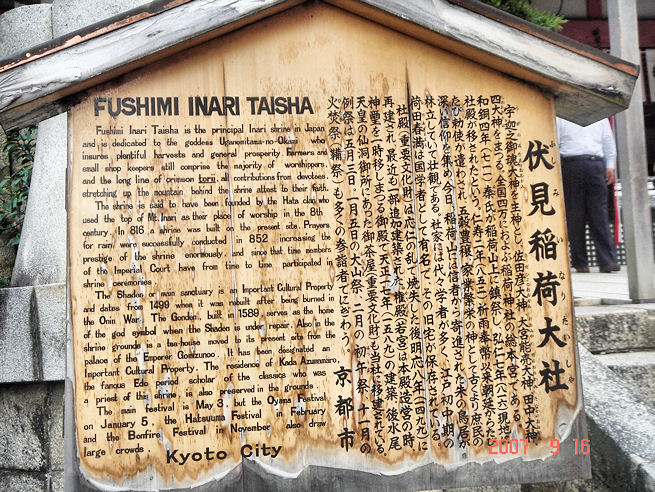 FUSHIMI INARI TAISHA
Fushimi Inari Taisha is the principal Inari shrine in Japan
and is dedicated to the goddess Upanomitama-no-Okami who
insures plentiful harvests and general prosperity. Farmers and
small shop keepers still comprise the majority of worshippers,
and the long line of crimson torii, all contributions from devotees,
stretching up the mountain behind the shrine attest to their faith.
The shrine is said to have been founded by the Hata clan who
used the top of Mt. Inari as their place of worship in the 8th
century. In 816 a shrine was built on the present site. Prayers
for rain were successfully conducted in 852 increasing the
prestige of the shrine enormously, and since that time members
of the Imperial Court have from time to time participated in
shrine ceremonies.
The Shaden or main sanctuary is an Important Cultural Property
and dates from 1499 when it was rebuilt after being burned in
the Onin War. The Gonden, built in 1589, serves as the home
of the god symbol when the Shaden is under repair. Also in the
shrine grounds is a tea-house moved to its present site from the
palace of the Emperor Gomizunoo. It has been designated an
Important Cultural Property. The residence of Kada Azumamaro,
the famous Edo period scholar of the classics who was
a priest of the shrine, is also preserved in the grounds.
The main festival is May 3, but the Oyama Festival
on January 5, the Hatsuuma Festival in February
and the Bonfire Festival in November also draw
large crowds.
Kyoto City
伏見稲荷大社
ふしみいなりたいしゃ
宇迦之御魂大神を主神とし、佐田彦大神、大宮能売大神、田中大神、
四大神をまつる、全国四万におよぶ稲荷神社の総本宮である。
和銅四年(七一一)秦氏が稲荷山上に鎮祭し、弘仁七年(八一六)現地に
社殿が移されたという。仁寿二年(八五二)祈雨奉幣以来朝廷からたび
たび勅使が遣わされ、五穀豊穣、家業繁栄の神として古より庶民の
深い信仰を集め、今日、稲荷山に信者から寄進された朱の鳥居が
林立していて壮観である。社家には代々学者が多く、江戸初中期の
荷田春満は国学者として有名で、その旧宅が保存されている。
社殿(重要文化財)は応仁の乱で焼失した後明応八年(一四九九)に
再建され、最近も一部造加建築された。権殿(若宮)は本殿造営の時、
神璽を一時移しまつる御殿で、天正十七年(一五八九)の建築、後水尾
天皇の仙洞御所にあった御茶屋(重要文化財)も当社に移建されている。
例祭は五月三日、一月五日の大山祭、二月の初午祭、十一月の
火焚祭(鞴祭)も多くの参詣者でにぎわう。
京都市
2007 9 16